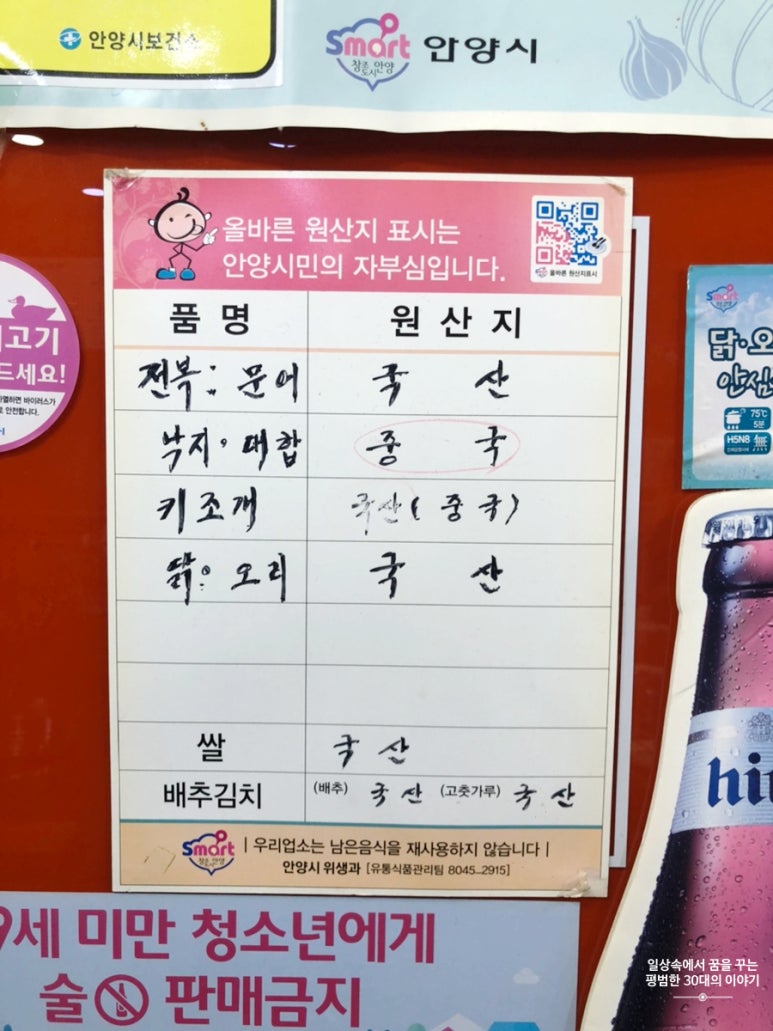 안양시보건소
Smart
창조 안양
도시
안양시
올바른 원산지 표시는
안양시민의 자부심입니다.
올바른 원산지표시
품명 원산지
전복: 문어 국 산
낙지·대합 중 국
키조개 국산(중국)
닭· 오리 국 산
쌀 국 산
배추김치 (배추) 국산 (고춧가루) 국산
Smart
창조 안양
도시
| 우리업소는 남은음식을 재사용하지 않습니다 |
안양시 위생과 [유통식품관리팀 8045-2915]
고기
드세요!
Smart
닭·오
안심
75℃
5분
H5N8
9세 미만 청소년에게
술 판매금지
hi
일상속에서 꿈을 꾸는
평범한 30대의 이야기